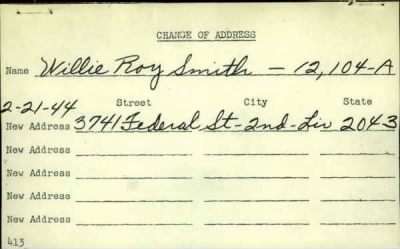 CHANGE OF ADDRESS
Name Willie Roy Smith - 12,104-A
2-21-44 Street City State
New Address 3741 Federal St - 2nd - Liv 2043
New Address
New Address
New Address
New Address
413